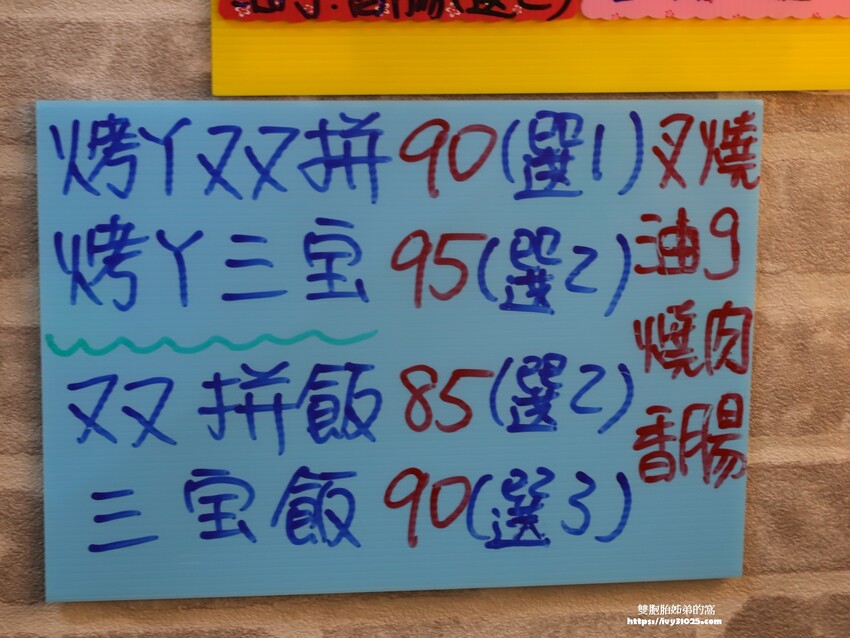 烤丫双拼90(選1)
烤丫三宝95(選2)
双拼飯85(選2)
三宝飯90(選3)
叉燒
油g
燒肉
香腸
雙胞胎姊弟的窩
https://ivy31025.com